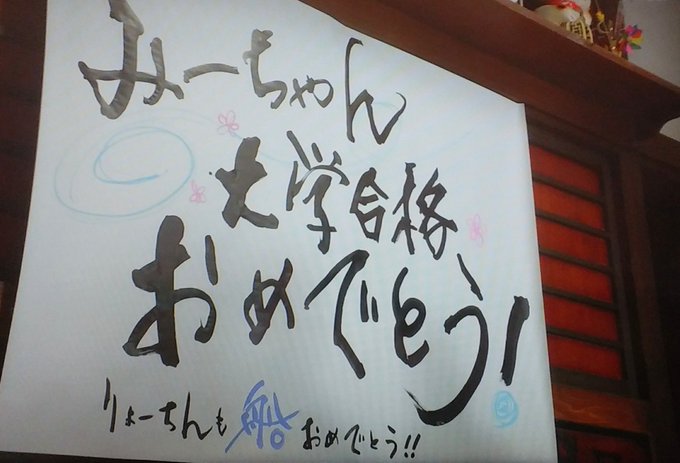 みーちゃん
大学合格
おめでとう!
りょーちんも船おめでとう!!